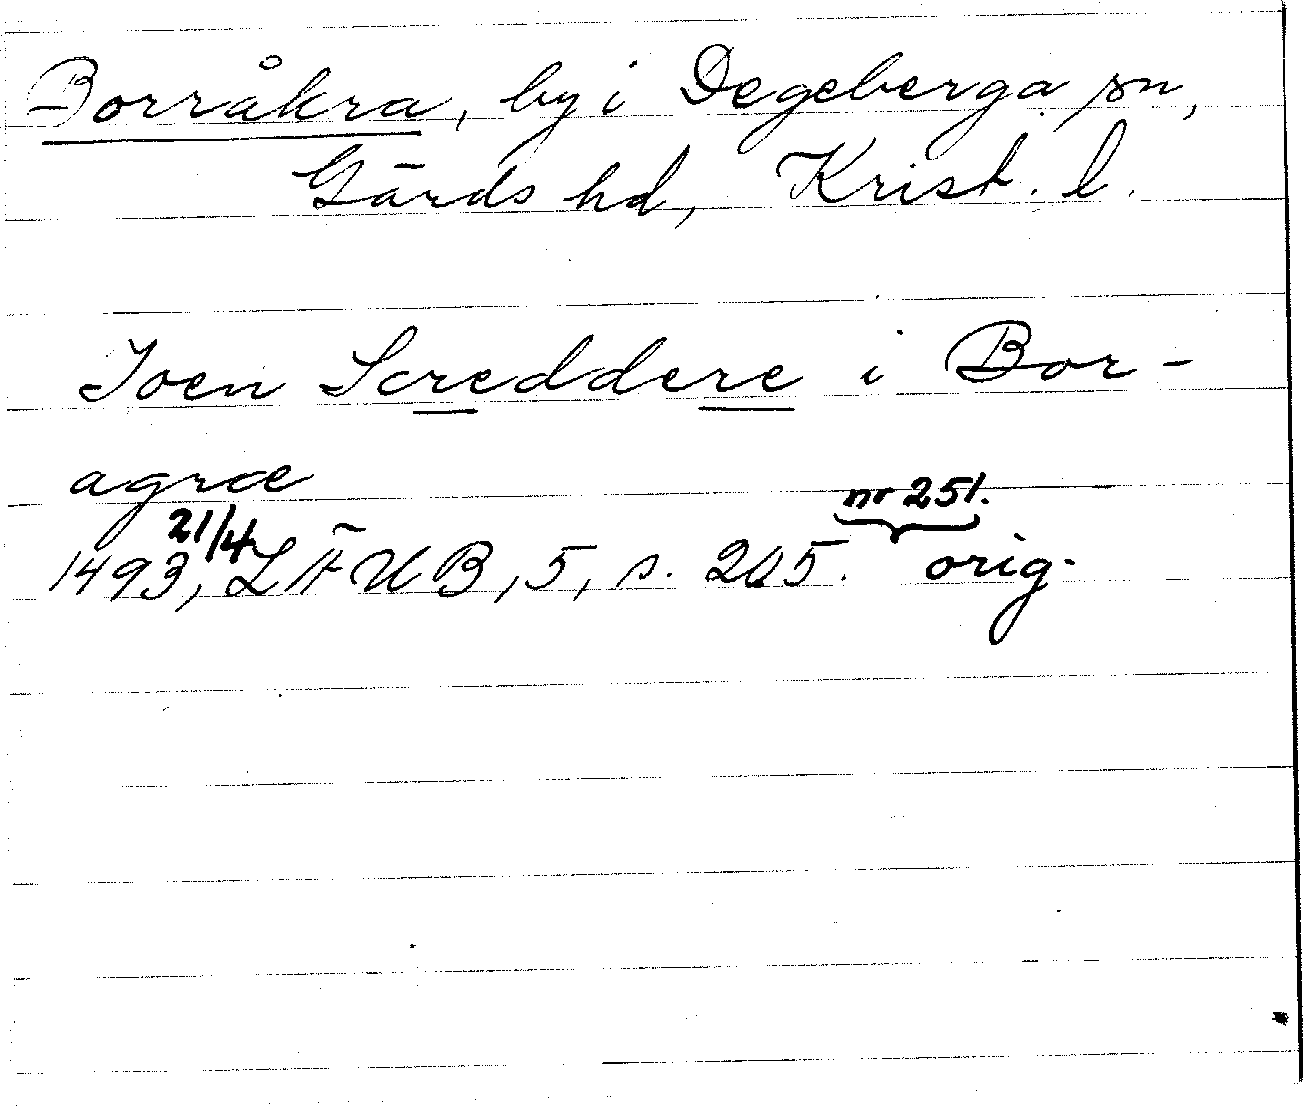 Borråkra, by i Degeberga sn,
Gärds hd, Krist. l.
Joen Screddere i Bor-
agræ
nr 251.
21/4
1493, LÄUB, 5, s. 205. orig.